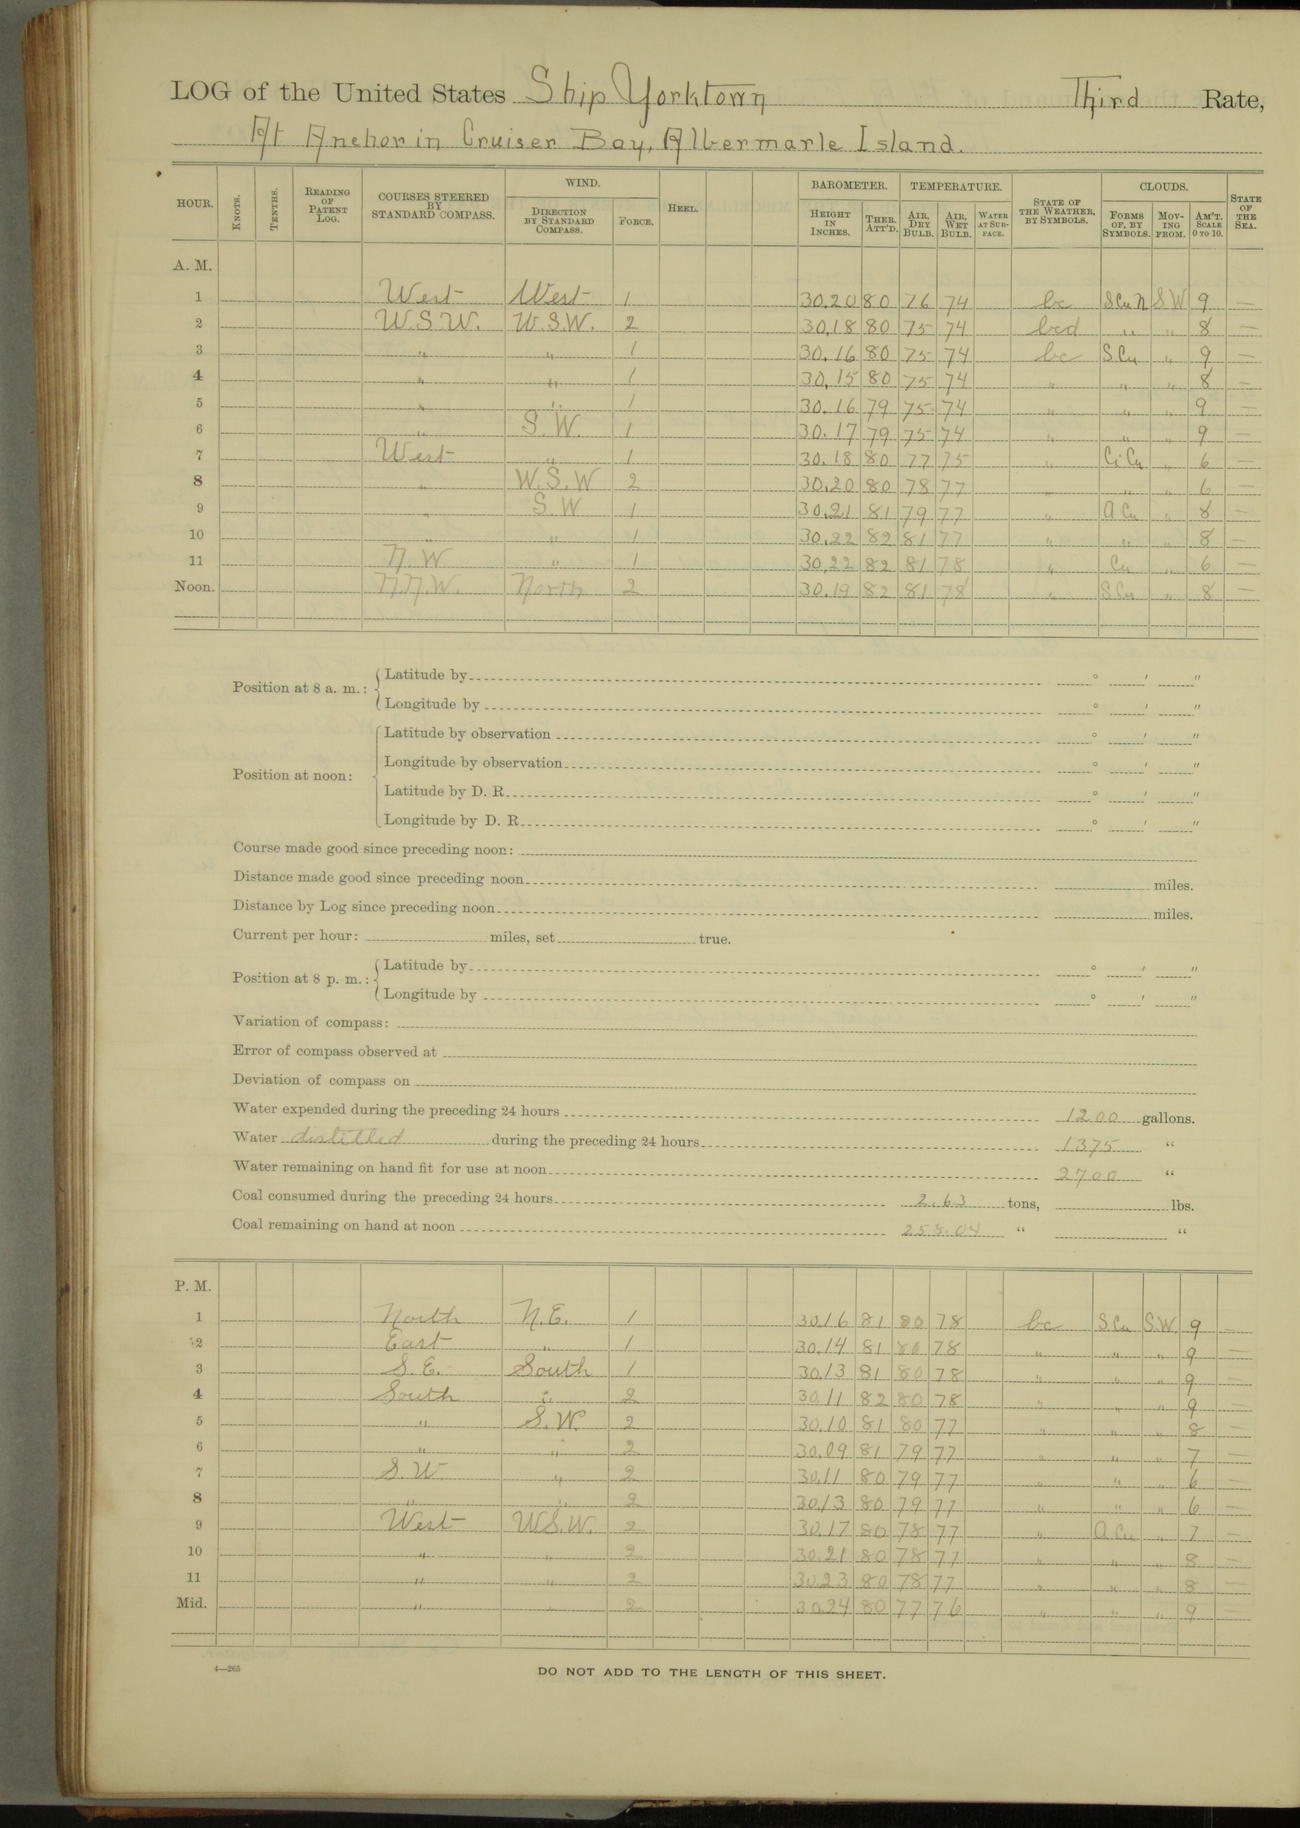 LOG of the United States Ship Yorktown Third Rate,
At Anchor in Cruiser Bay, Albermarle Island.
HOUR. KNOTS. TENTHS. READING OF PATENT LOG. COURSES STEERED BY STANDARD COMPASS. WIND. DIRECTION BY STANDARD COMPASS. FORCE. HEEL. BAROMETER. HEIGHT IN INCHES. THER. ATT'D. TEMPERATURE. AIR, DRY BULB. AIR, WET BULB. WATER AT SURFACE. STATE OF THE WEATHER, BY SYMBOLS. CLOUDS. FORMS OF, BY SYMBOLS. MOVING FROM. AM'T. SCALE 0 TO 10. STATE OF THE SEA.
A. M.
1 West West 1 30.20 80 76 74 bc S Cu N S W 9 —
2 W.S.W. W.S.W. 2 30.18 80 75 74 bcd " " 8 —
3 " " 1 30.16 80 75 74 bc S Cu " 9 —
4 " " 1 30.15 80 75 74 " " " 8 —
5 " " 1 30.16 79 75 74 " " " 9 —
6 " S.W. 1 30.17 79 75 74 " " " 9 —
7 West " 1 30.18 80 77 75 " Ci Cu " 6 —
8 " W.S.W 2 30.20 80 78 77 " " " 6 —
9 " S.W 1 30.21 81 79 77 " a Cu " 8 —
10 " " 1 30.22 82 81 77 " " " 8 —
11 N.W " 1 30.22 82 81 78 " Cu " 6 —
Noon. N.N.W. North 2 30.19 82 81 78 " S Cu " 8 —
Position at 8 a. m.: Latitude by ° ' "
Longitude by ° ' "
Position at noon: Latitude by observation ° ' "
Longitude by observation ° ' "
Latitude by D. R. ° ' "
Longitude by D. R. ° ' "
Course made good since preceding noon:
Distance made good since preceding noon miles.
Distance by Log since preceding noon miles.
Current per hour: miles, set true.
Position at 8 p. m.: Latitude by ° ' "
Longitude by ° ' "
Variation of compass:
Error of compass observed at
Deviation of compass on
Water expended during the preceding 24 hours 1200 gallons.
Water distilled during the preceding 24 hours 1375 "
Water remaining on hand fit for use at noon 2700 "
Coal consumed during the preceding 24 hours 2.63 tons, lbs.
Coal remaining on hand at noon " "
P. M.
1 North N.E. 1 30.16 81 80 78 bc S Cu S.W. 9 —
2 East " 1 30.14 81 80 78 " " " 9 —
3 S.E. South 1 30.13 81 80 78 " " " 9 —
4 South " 2 30.11 82 80 78 " " " 9 —
5 " S.W. 2 30.10 81 80 77 " " " 8 —
6 " " 2 30.09 81 79 77 " " " 7 —
7 S.W. " 2 30.11 80 79 77 " " " 6 —
8 " " 2 30.13 80 79 77 " " " 6 —
9 West W.S.W. 2 30.17 80 78 77 " a Cu " 7 —
10 " " 2 30.21 80 78 77 " " " 8 —
11 " " 2 30.23 80 78 77 " " " 8 —
Mid. " " 2 30.24 80 77 76 " " " 9 —
4—265
DO NOT ADD TO THE LENGTH OF THIS SHEET.